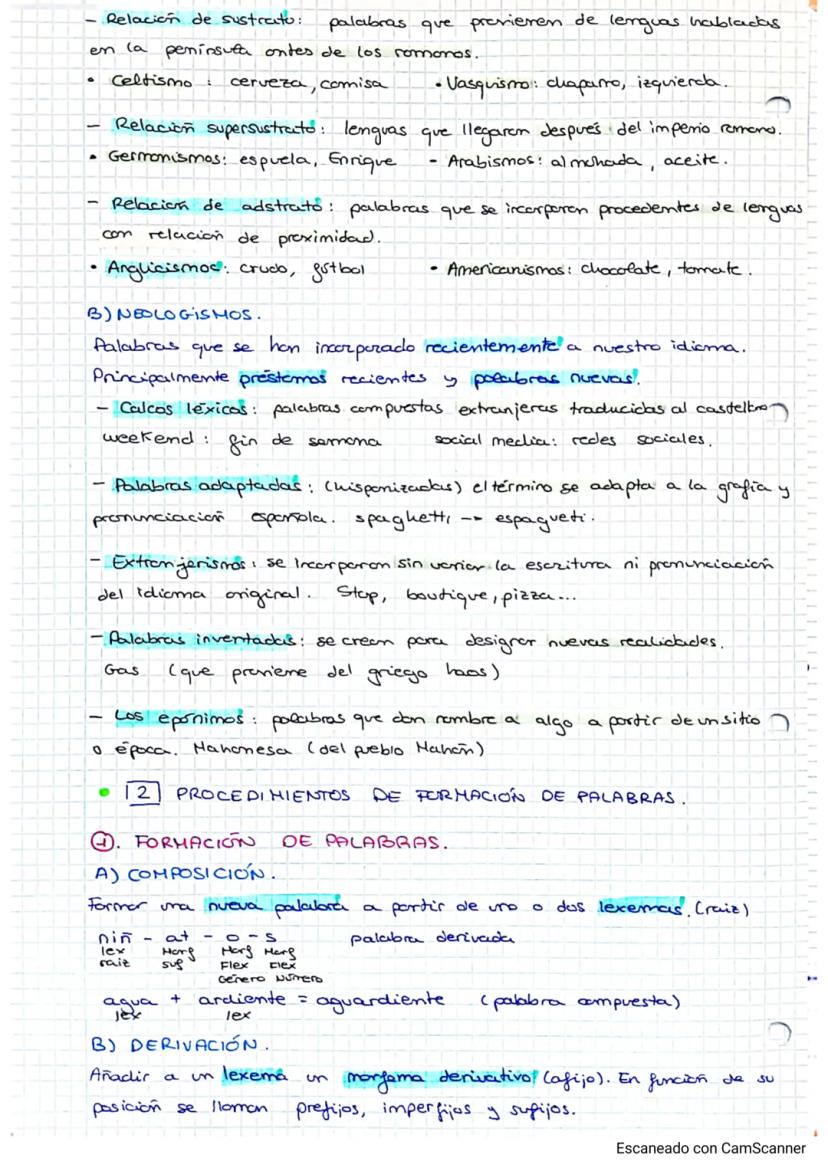 - Relación de sustrato: palabras que provienen de lenguas habladas
en la península antes de los romanos.
• Celtismo: cerveza, camisa • Vasquismo: chaparro, izquierda.
- Relación supersustrato: lenguas que llegaron después del imperio romano.
• Germonismos: espuela, Enrique - Arabismos: almohada, aceite.
- Relación de adstrato: palabras que se incorporan procedentes de lenguas
con relación de proximidad.
• Anglicismos: crudo, fútbol • Americanismos: chocolate, tomate.
B) NEOLOGISMOS.
Palabras que se han incorporado recientemente a nuestro idioma.
Principalmente préstamos recientes y palabras nuevas.
- Calcos léxicos: palabras compuestas extranjeras traducidas al castellano
weekend: fin de semana social media: redes sociales.
- Palabras adaptadas: (hispanizadas) el término se adapta a la grafía y
pronunciación española. spaghetti --> espagueti.
- Extranjerismos: se incorporan sin variar la escritura ni pronunciación
del idioma original. Stop, boutique, pizza...
- Palabras inventadas: se crean para designar nuevas realidades.
Gas (que proviene del griego haos)
- Los epónimos: palabras que dan nombre a algo a partir de un sitio
o época. Mahonesa (del pueblo Mahón)
• 2 PROCEDIMIENTOS DE FORMACIÓN DE PALABRAS.
1. FORMACIÓN DE PALABRAS.
A) COMPOSICIÓN.
Formar una nueva palabra a partir de uno o dos lexemas. (raiz)
niñ - at - o - s palabra derivada
lex Morf Morf Morf
raiz suf Flex Flex
Género Número
agua + ardiente = aguardiente (palabra compuesta)
lex lex
B) DERIVACIÓN.
Añadir a un lexema un morfema derivativo (afijo). En función de su
posición se llaman prefijos, imperfijos y sufijos.
Escaneado con CamScanner